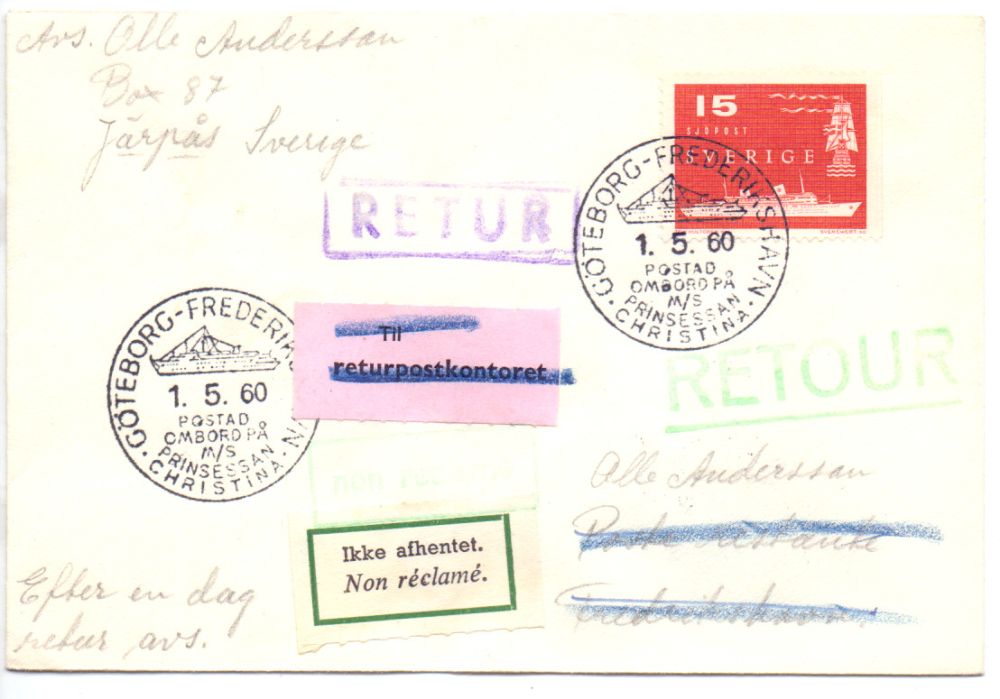 Avs. Olle Andersson
Box 87
Järpås Sverige
15
SJÖPOST
SVERIGE
RETUR
GÖTEBORG-FREDERIKSHAVN
1. 5. 60
POSTAD
OMBORD PÅ
M/S
PRINSESSAN
CHRISTINA
GÖTEBORG-FREDERIKSHAVN
1. 5. 60
POSTAD
OMBORD PÅ
M/S
PRINSESSAN
CHRISTINA
Til
returpostkontoret
RETOUR
non
Olle Andersson
Poste restante
Frederikshavn
Ikke afhentet.
Non réclamé.
Efter en dag
retur avs.